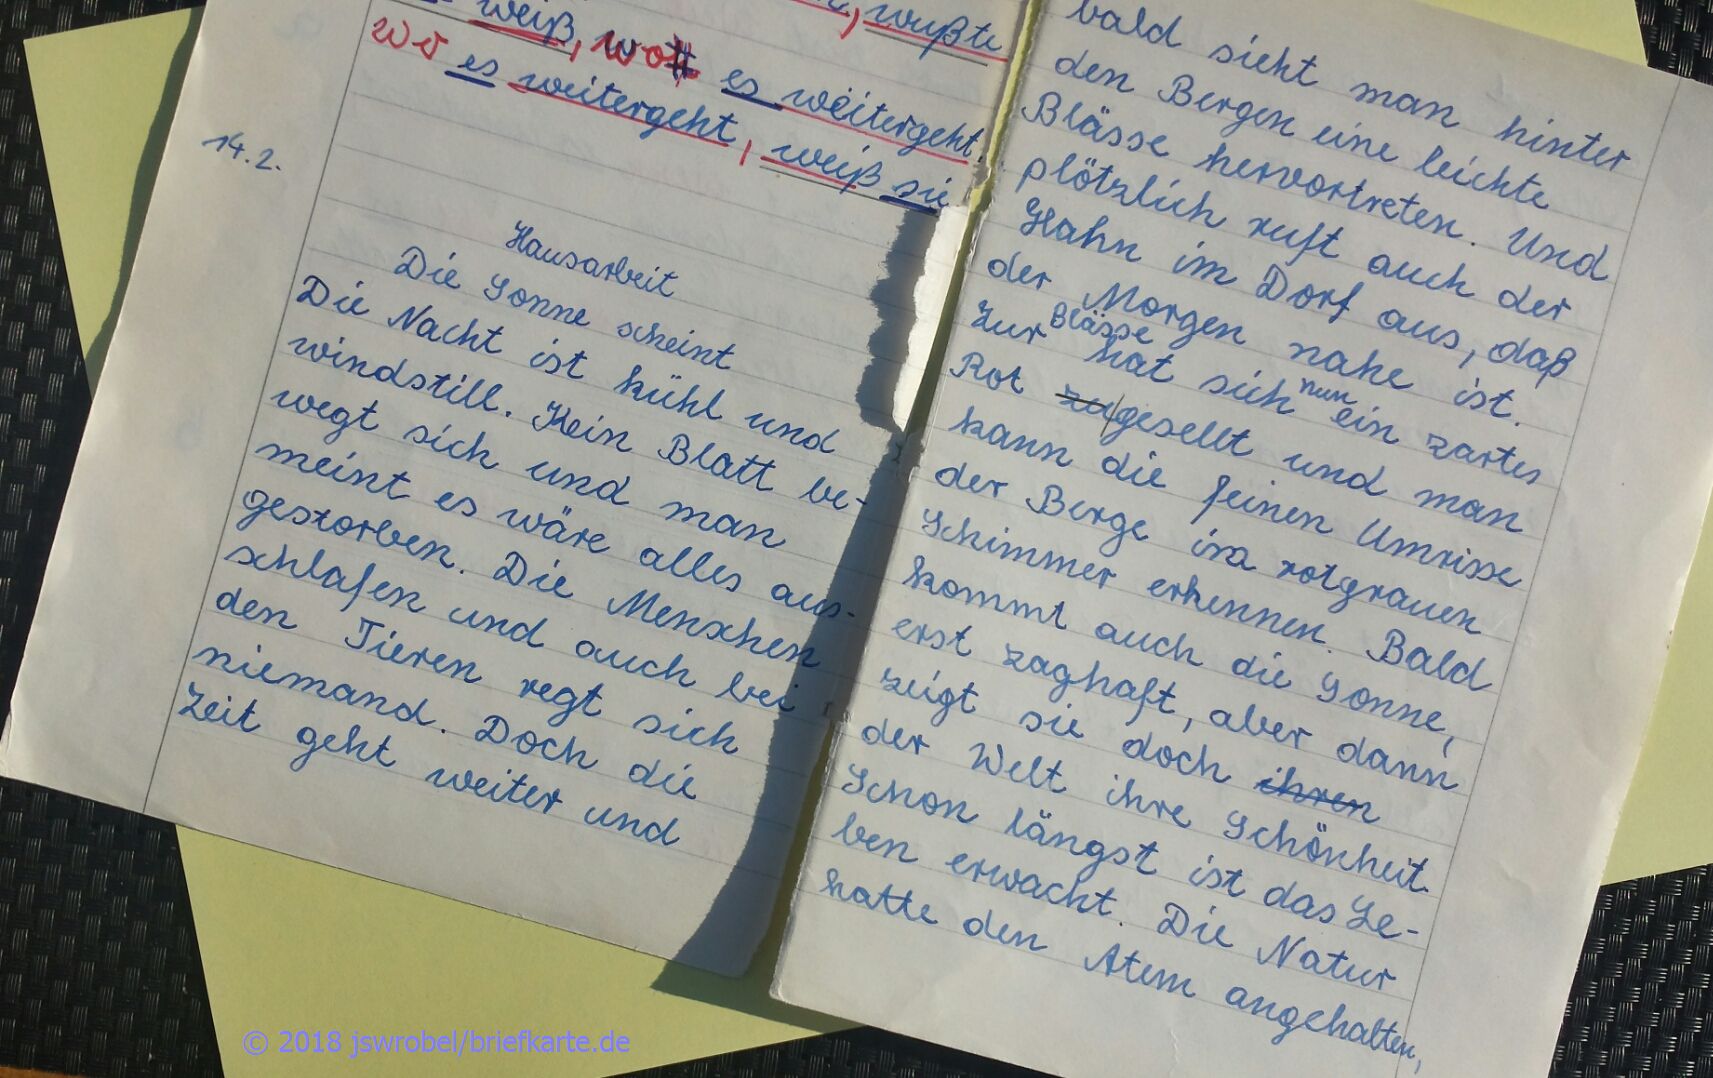 weiß, wo es weitergeht.
Wo es weitergeht, weiß sie
14.2.
Hausarbeit
Die Sonne scheint
Die Nacht ist kühl und
windstill. Kein Blatt be-
wegt sich und man
meint es wäre alles aus-
gestorben. Die Menschen
schlafen und auch bei
den Tieren regt sich
niemand. Doch die
Zeit geht weiter und
, wußte
bald sieht man hinter
den Bergen eine leichte
Blässe hervortreten. Und
plötzlich ruft auch der
Hahn im Dorf aus, daß
der Morgen nahe ist.
Zur Blässe hat sich nun ein zartes
Rot zugesellt und man
kann die feinen Umrisse
der Berge im rotgrauen
Schimmer erkennen. Bald
kommt auch die Sonne,
erst zaghaft, aber dann
zeigt sie doch ihren
der Welt ihre Schönheit.
Schon längst ist das Le-
ben erwacht. Die Natur
hatte den Atem angehalten,
© 2018 jswrobel/briefkarte.de